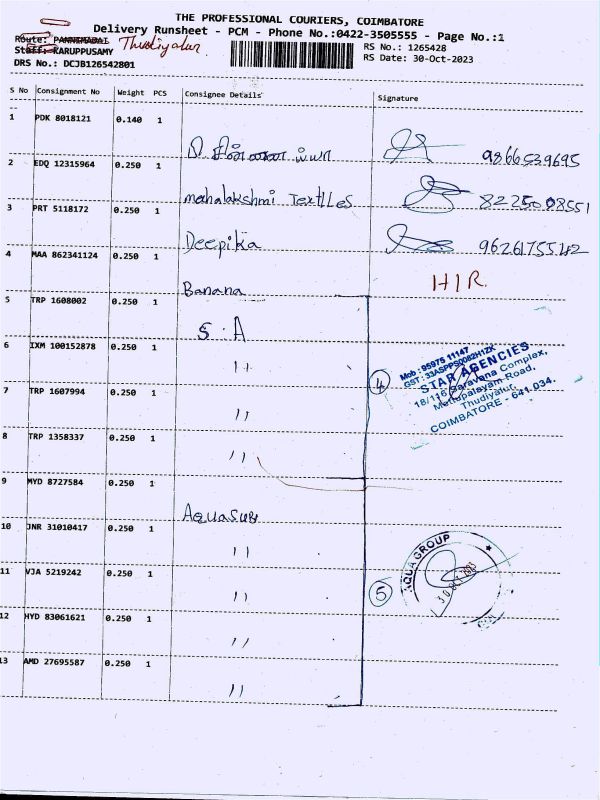 THE PROFESSIONAL COURIERS, COIMBATORE
Delivery Runsheet - PCM - Phone No.:0422-3505555 - Page No.:1
Route: PANNIMADAI Thudiyalur
RS No.: 1265428
Staff: KARUPPUSAMY
RS Date: 30-Oct-2023
DRS No.: DCJB126542801
S No Consignment No Weight PCS Consignee Details Signature
1 PDK 8018121 0.140 1
9866539695
2 EDQ 12315964 0.250 1
mahalakshmi Textiles 8225008551
3 PRT 5118172 0.250 1
Deepika 9626175542
4 MAA 862341124 0.250 1
Banana HIR.
5 TRP 1608002 0.250 1
S. A
6 IXM 100152878 0.250 1
11
4
Mob : 95975 11147
GST : 33ASPPS0082H1ZK
STAR AGENCIES
18/116, Saravana Complex,
Mettupalayam Road,
Thudiyalur,
COIMBATORE - 641 034.
7 TRP 1607994 0.250 1
11
8 TRP 1358337 0.250 1
11
9 MYD 8727584 0.250 1
Aquasub
10 JNR 31010417 0.250 1
11
AQUA GROUP
30 OCT 2023
5
11 VJA 5219242 0.250 1
11
12 HYD 83061621 0.250 1
11
13 AMD 27695587 0.250 1
11